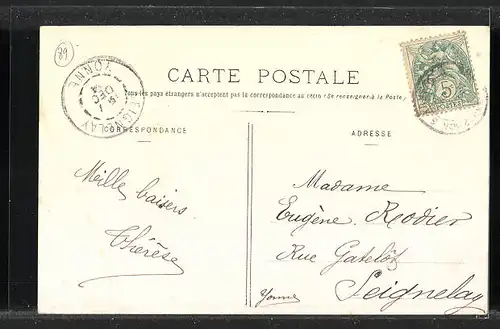 89
SEIGNELAY
YONNE
DEC
5
CARTE POSTALE
Tous les pays étrangers n'acceptent pas la correspondance au recto (Se renseigner à la Poste)
CORRESPONDANCE
ADRESSE
Mille baisers
Thérèse
Madame
Eugène Rodier
Rue Gatelôt
Seignelay
Yonne